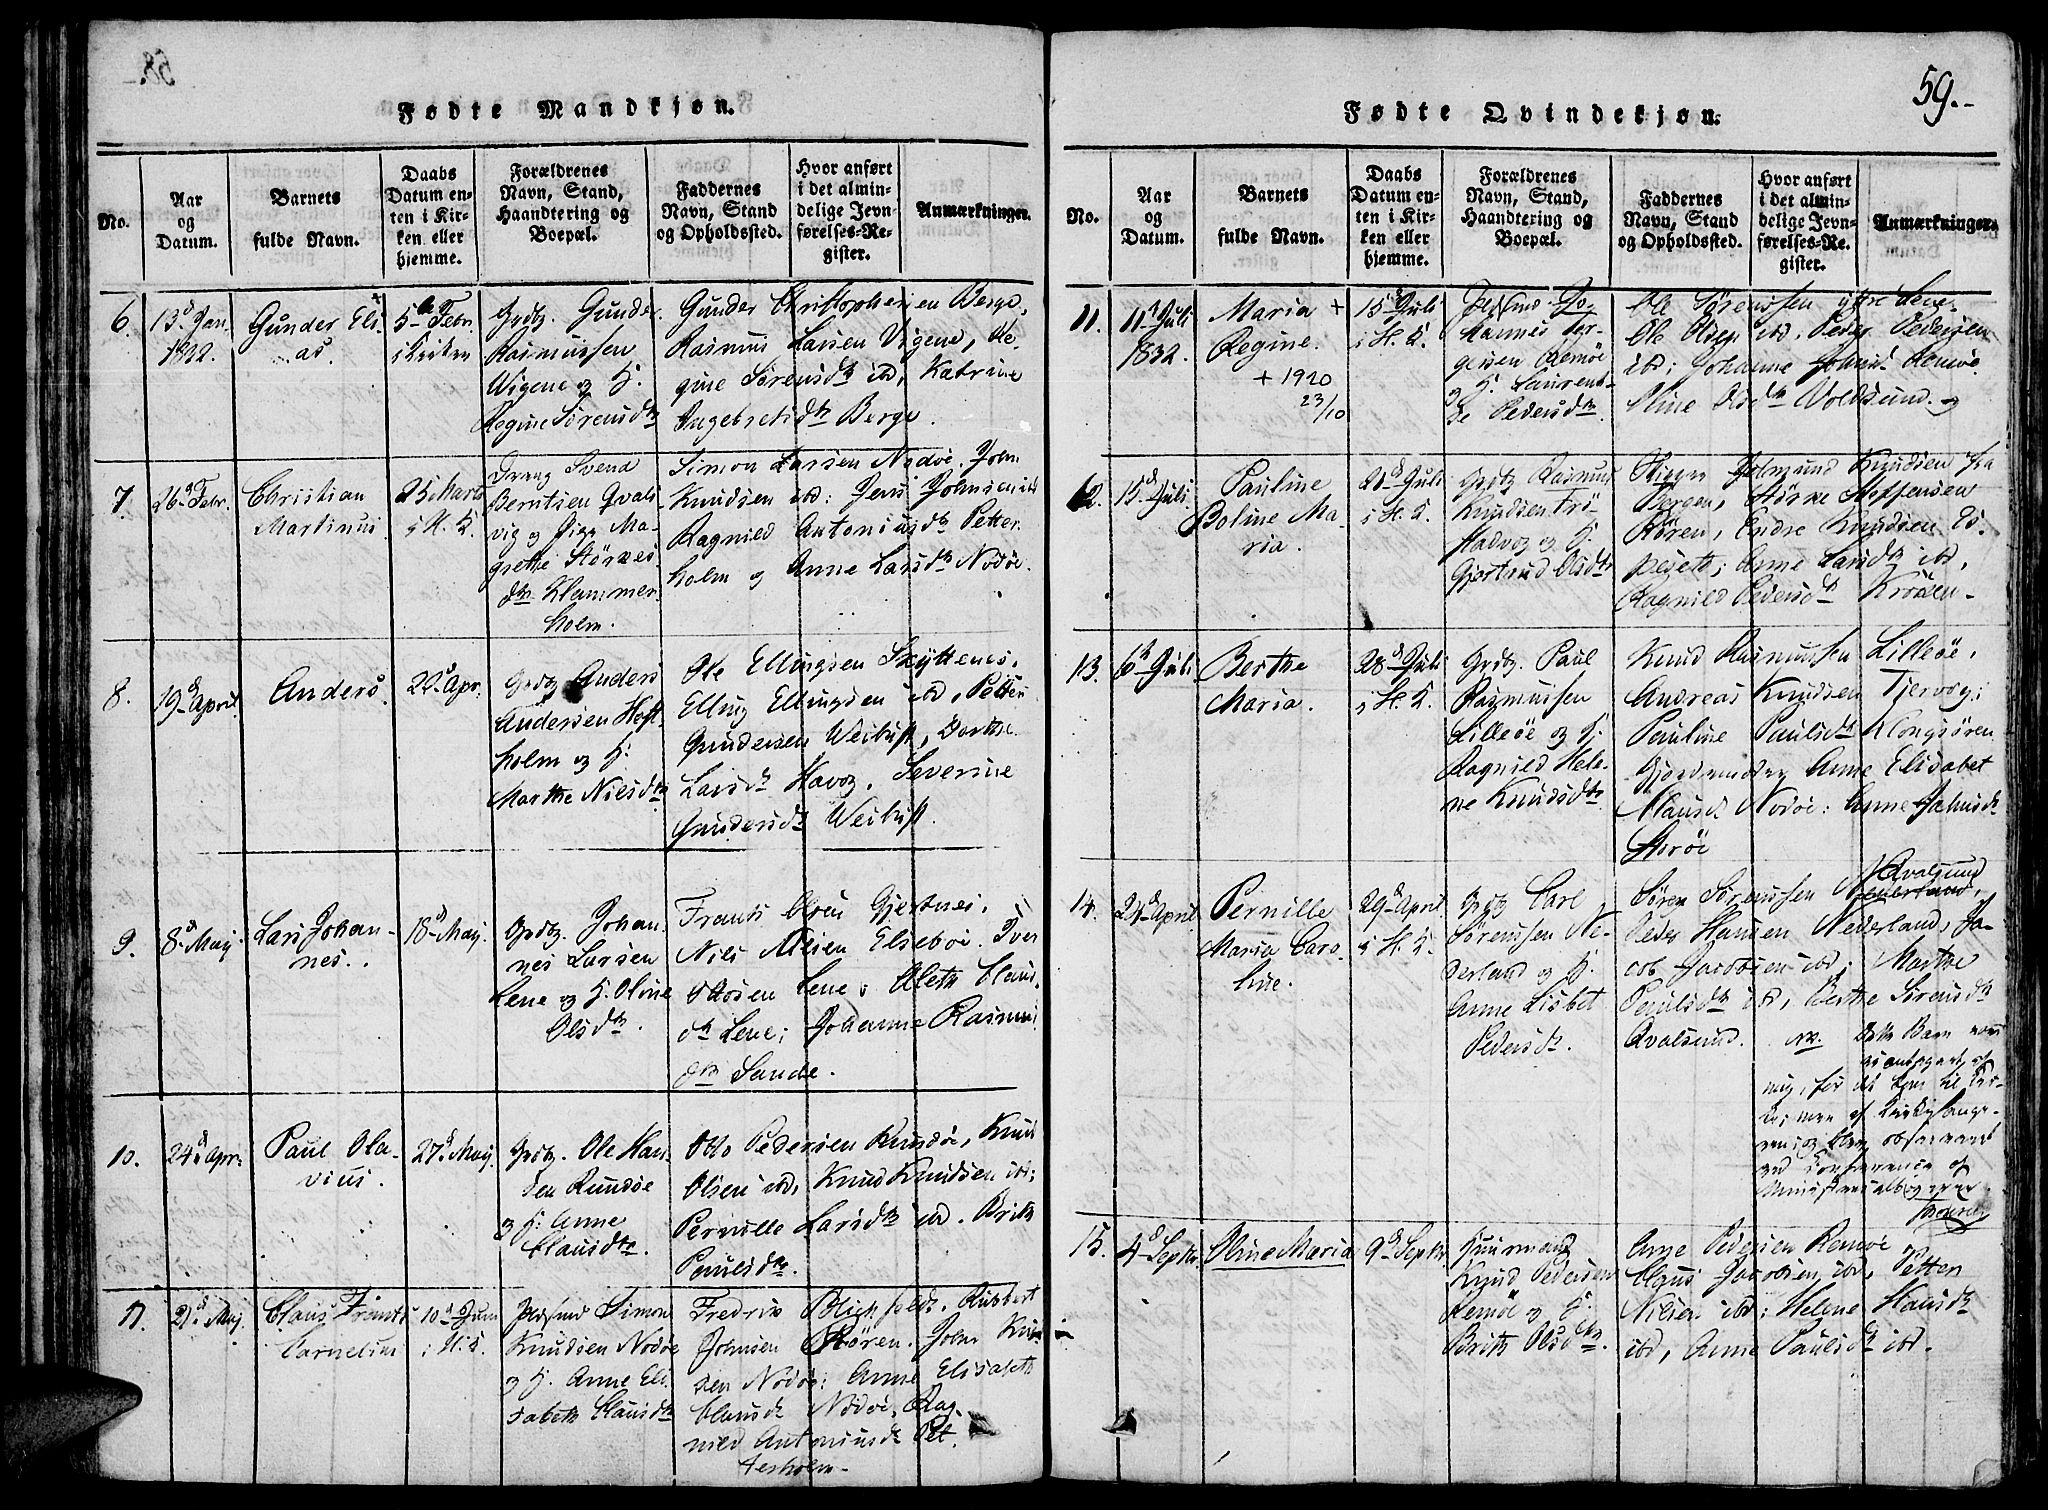 Fødte Mandkjøn.
No.
Aar
og
Datum.
Barnets
fulde Navn.
Daabs
Datum en-
ten i Kir-
ken eller
hjemme.
Forældrenes
Navn, Stand,
Haandtering og
Boepæl.
Faddernes
Navn, Stand
og Opholdssted.
Hvor anført
i det almin-
delige Jevn-
førelses-Re-
gister.
Anmærkninger.
6.
13d Jan.
1832.
Gunder Eli-
as.
5te Febr.
i Kirken
Grdbr. Gunder
Rasmussen
Wigene og H.
Regine Sørensdtr
Gunder Christophersen Berge,
Rasmus Larsen Vigene, Re-
gine Sørensdtr ibd, Katrine
Ingebretsdtr Berge.
7.
26d Febr.
Christian
Martinus.
25 Marts
i H. K.
Drang Svend
Berntsen Qvals-
vig og Pige Ma-
grethe Størkes
dtr. Klammer-
holm.
Simon Larsen Nodøe. John
Knudsen ibd: Jens Johnsen ibd
Ragnild Antoniusdtr Petter
holm og Anne Larsdtr Nodøe.
8.
19d April.
Anders.
22d Apr.
Grdbr. Anders
Andersen Hest-
holm og H.
Marthe Nielsdtr
Ole Ellingsen Skyttenes.
Elling Ellingsen ibd, Petter
Gundersen Weibust, Dorthe
Larsdtr Havog. Severine
Gundersdtr Weibust.
9.
8d May
Lars Johan-
nes.
18d May.
Grdbr. Johan-
nes Larsen
Lene og H. Oline
Olsdtr.
Frands Olsen Gjertnes.
Nils Nilsen Elsebøe. Iver
Lene; Aleth Claus-
dtr Lene; Johanne Rasmus
dtr Sande.
10.
24d Apr.
Paul Ola-
vius.
27d May.
Grdbr. Ole Han-
sen Rundøe
og H. Anne
Clausdtr.
Otto Pedersen Rundøe, Knud
Olsen ibd, Knud Knudsen ibd;
Pernille Larsdtr ibd. Brithe
Poulsdtr.
11.
21d May.
Claus Frants
Cornelius
10d Juni
i H. K.
Plads md Simon
Knudsen Nodøe
og H. Anne Eli-
sabeth Clausdtr
Fredrik Blichfeldt. Rubbert
Johnsen Røren. John Knud-
sen Nodøe: Anne Elisabeth
Clausdtr Nodøe, Rag-
nild Antoniusdtr Pet-
terholm.
59.-
Fødte Qvindekjøn.
No.
Aar
og
Datum.
Barnets
fulde Navn.
Daabs
Datum en-
ten i Kir-
ken eller
hjemme.
Forældrenes
Navn, Stand,
Haandtering og
Boepæl.
Faddernes
Navn, Stand
og Opholdssted.
Hvor anført
i det almin-
delige Jevn-
førelses-Re-
gister.
Anmærkninger.
11.
11d Juli
1832.
Maria +
Regine.
+ 1920
23/10
15d Juli
i H. K.
Pladsmd. Jo-
hannes Jør-
gensen Remøe
og H. Laurent-
se Pedersdtr.
Ole Sørenssen ytre Lene-
Ole Olsen ibd. Peder Pedersen
ibd; Johanne Johnsd. Remøe.
Oline Olsdtr Woldsund. og
12.
15d Juli.
Pauline
Boline Ma-
ria.
28d Juli
i H. K.
Grdbr Rasmus
Knudsen Frø-
stadvog og H.
Gjertrud Olsdtr
Skipper Johnund Knudsen fra
Bergen, Størke Steffensen
Røren, Endre Knudsen Es-
peseth; Anne Larsdtr ibd,
Ragnild Pedersdtr Krøken-
13.
6te Juli
Berthe
Maria.
28d Juli
i H. K.
Grdbr. Paul
Rasmussen
Lilleøe og H.
Ragnild Hele-
ne Knudsdtr
Knud Rasmussen Lilleøe,
Andreas Knudsen Tjervog;
Pauline Paulsdtr Klongsøren
Gjordemoder Anne Elisabet
Clausd. Nodøe: Anne Johnsdtr
Storøe
14.
24d April.
Pernille
Maria Caro-
line.
29d April
i H. K.
Grdbr Carl
Sørenssen Ne-
derland og H.
Anne Lisbet
Pedersdtr.
Søren Sørenssen Qvalsund
Peder Hansen Nederland, Ja-
cob Jacobsen ibd; Marthe
Paulsdtr ibd, Berthe Sørensdtr
Qvalsund. NB. Dette Barn
15.
4d Septbr.
Oline Maria
9d Septbr.
Huusmand
Knud Pedersen
Remøe og H.
Brithe Olsdtr.
Aage Pedersen Remøe
Claus Jacobsen ibd, Petter
Nilsen ibd; Helene Hansdtr
ibd, Anne Paulsdtr ibd.